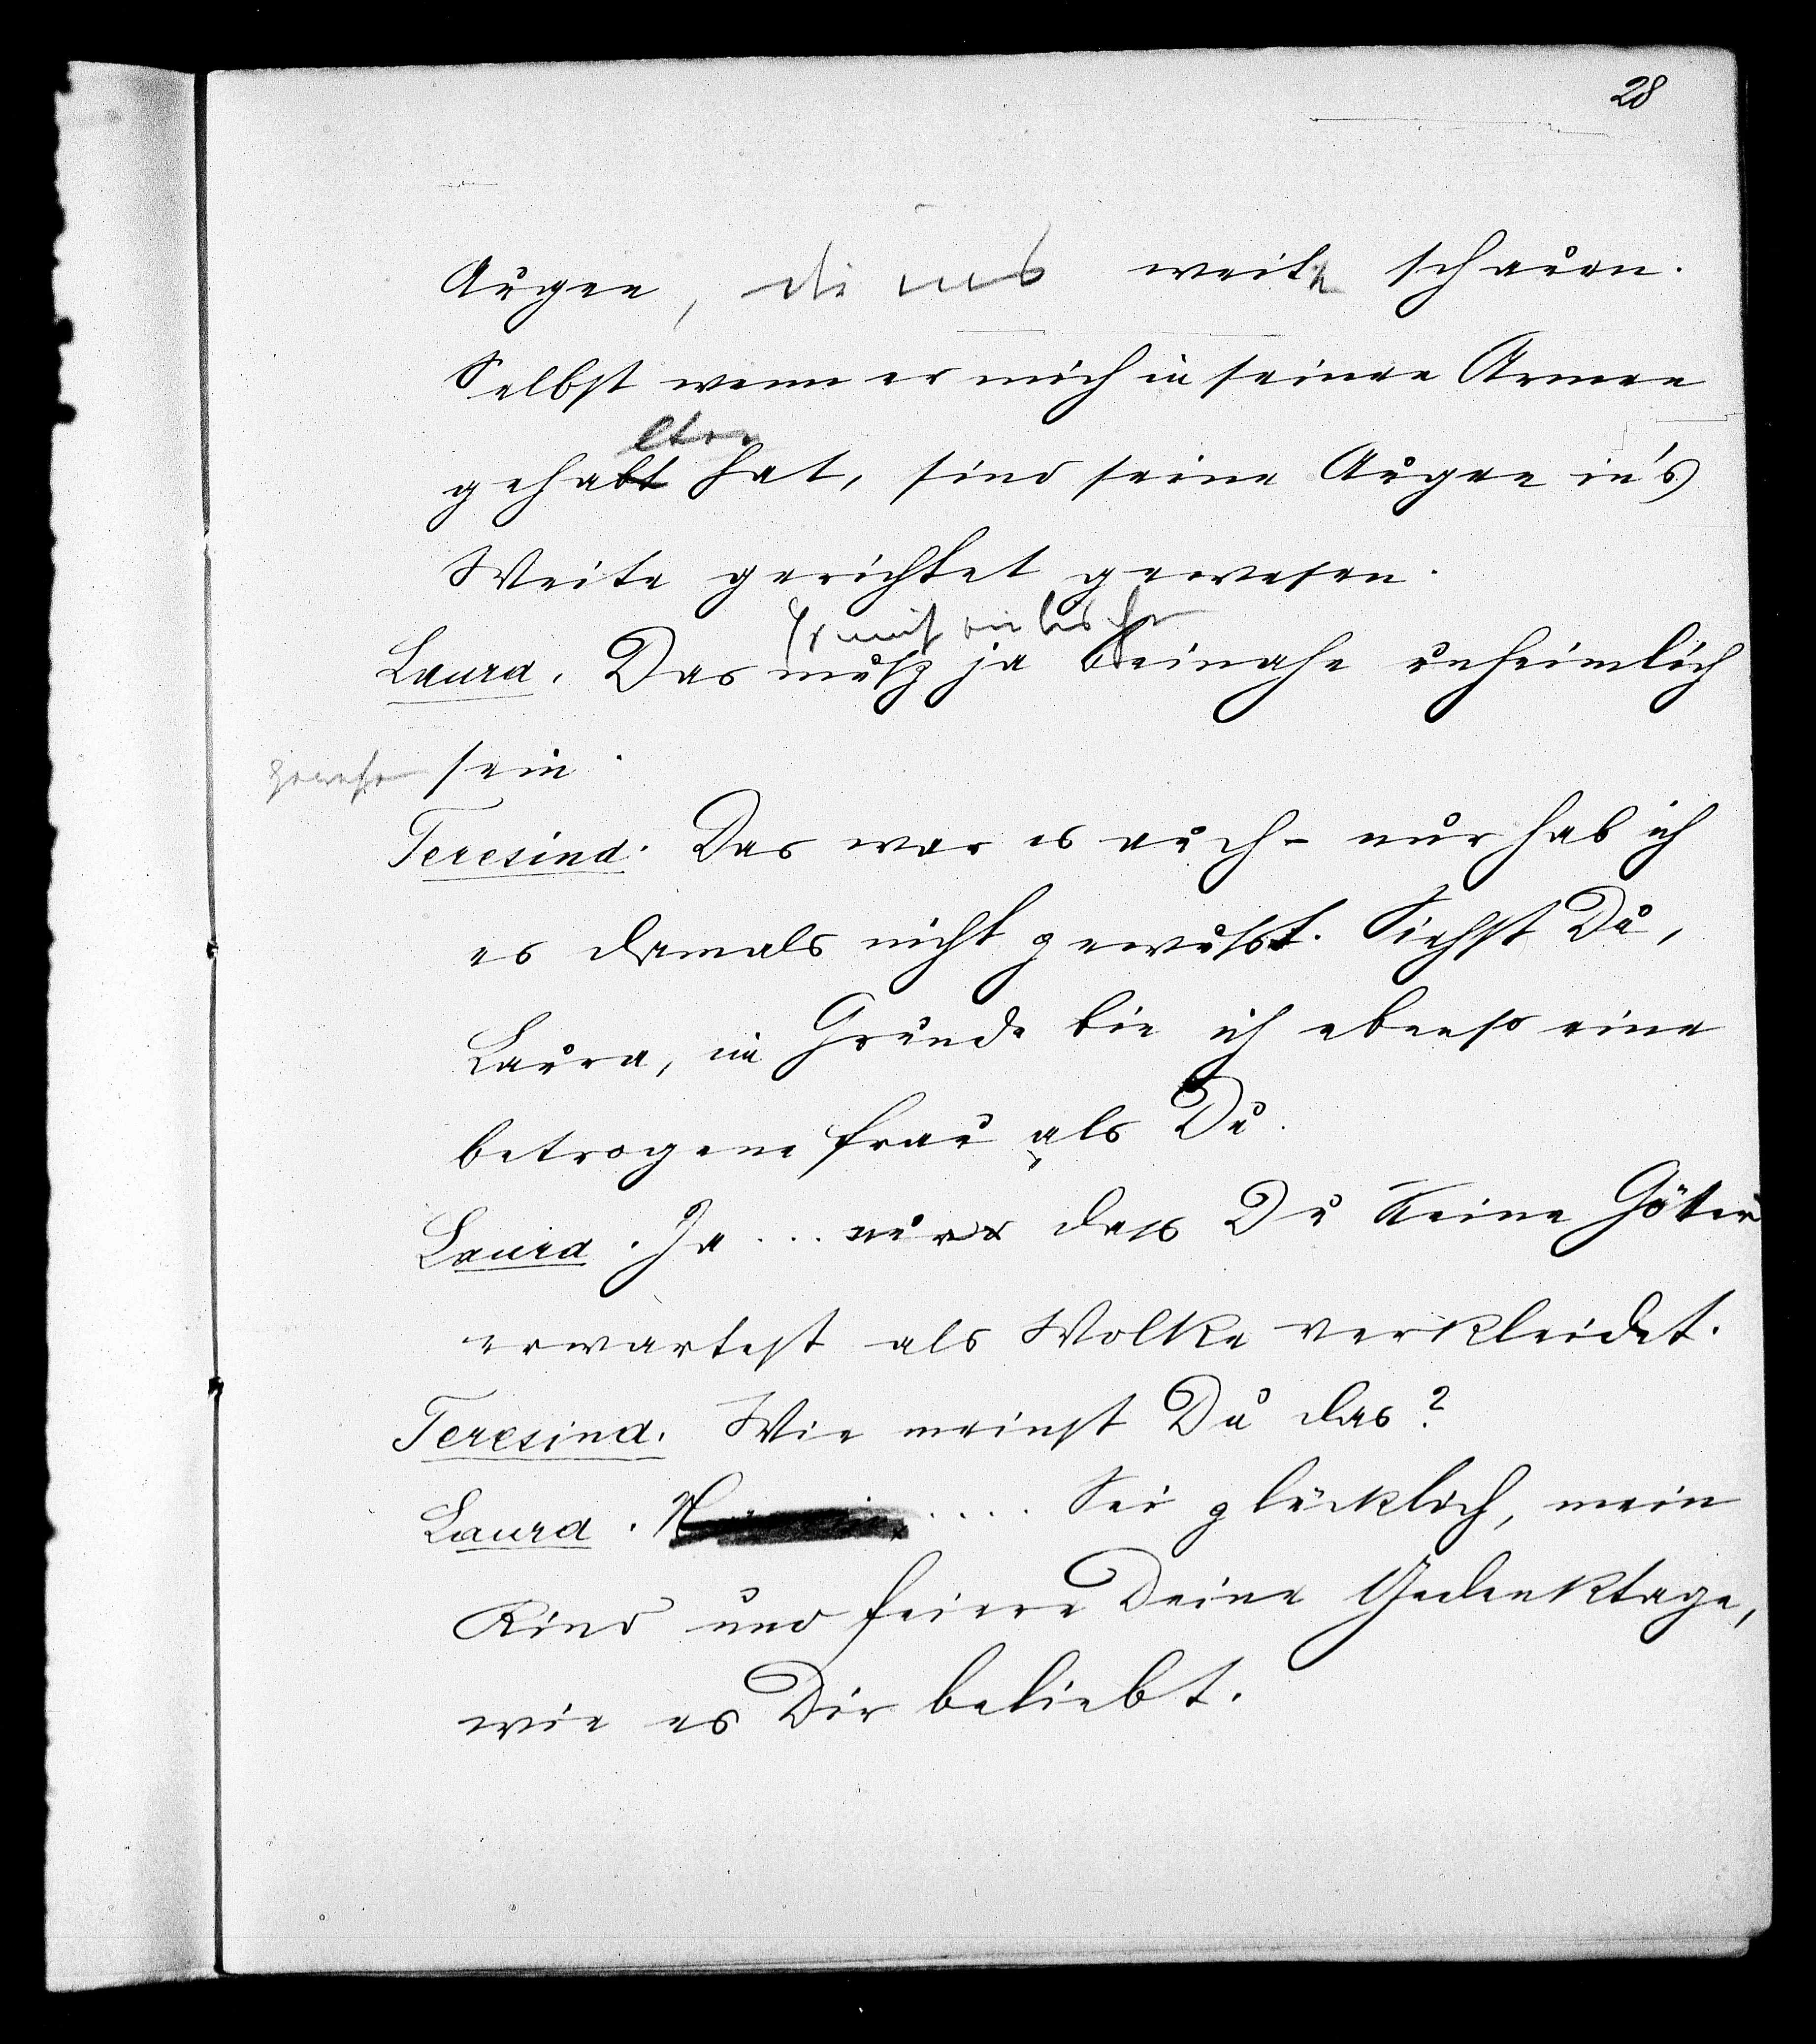 28
Augen, die ins weite schauen.
Selbst wenn er mich in seinen Armen
lten
gehabt hat, sind seine Augen in's
Weite gerichtet gewesen.
Laura. Das muß ja beinahe unheimlich
gewesen sein.
Teresina. Das war es auch – nur hab ich
es damals nicht gewußt. Siehst Du,
Laura, im Grunde bin ich ebenso eine
betrogene Frau als Du.
Laura. Ja ... nur daß Du keine Götter
erwartest als Wolke verkleidet.
Teresina. Wie meinst Du das?
Laura. .... Sei glücklich, mein
Kind und feiere Deine Gedenktage,
wie es Dir beliebt.